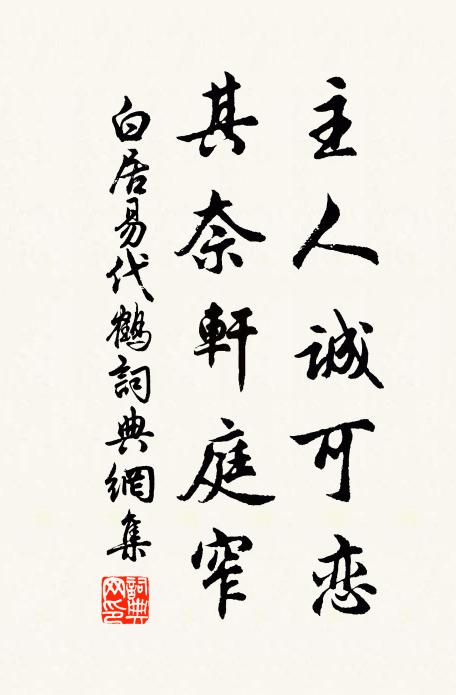 主人誠可恋
其奈軒庭窄
白居易代鶴詞典網集
詞典网印